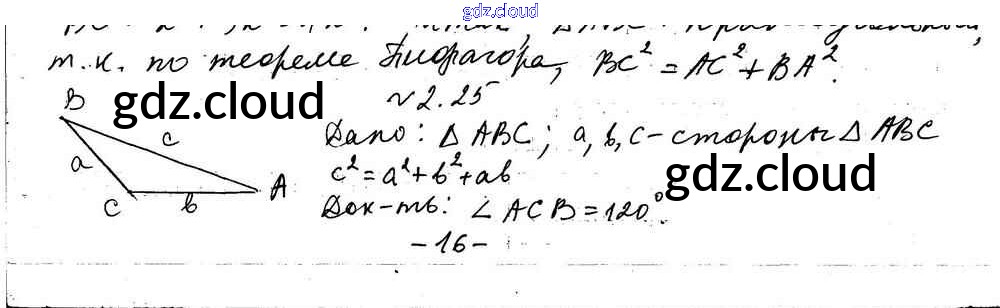 gdz.cloud
т.к. по теореме Пифагора, BC² = AC² + BA².
gdz.cloud
~2.25
B
c
a
A
C
b
Дано: △ ABC; a, b, c - стороны △ ABC
c² = a² + b² + ab
gdz.cloud
Док-ть: ∠ ACB = 120°.
- 16 -